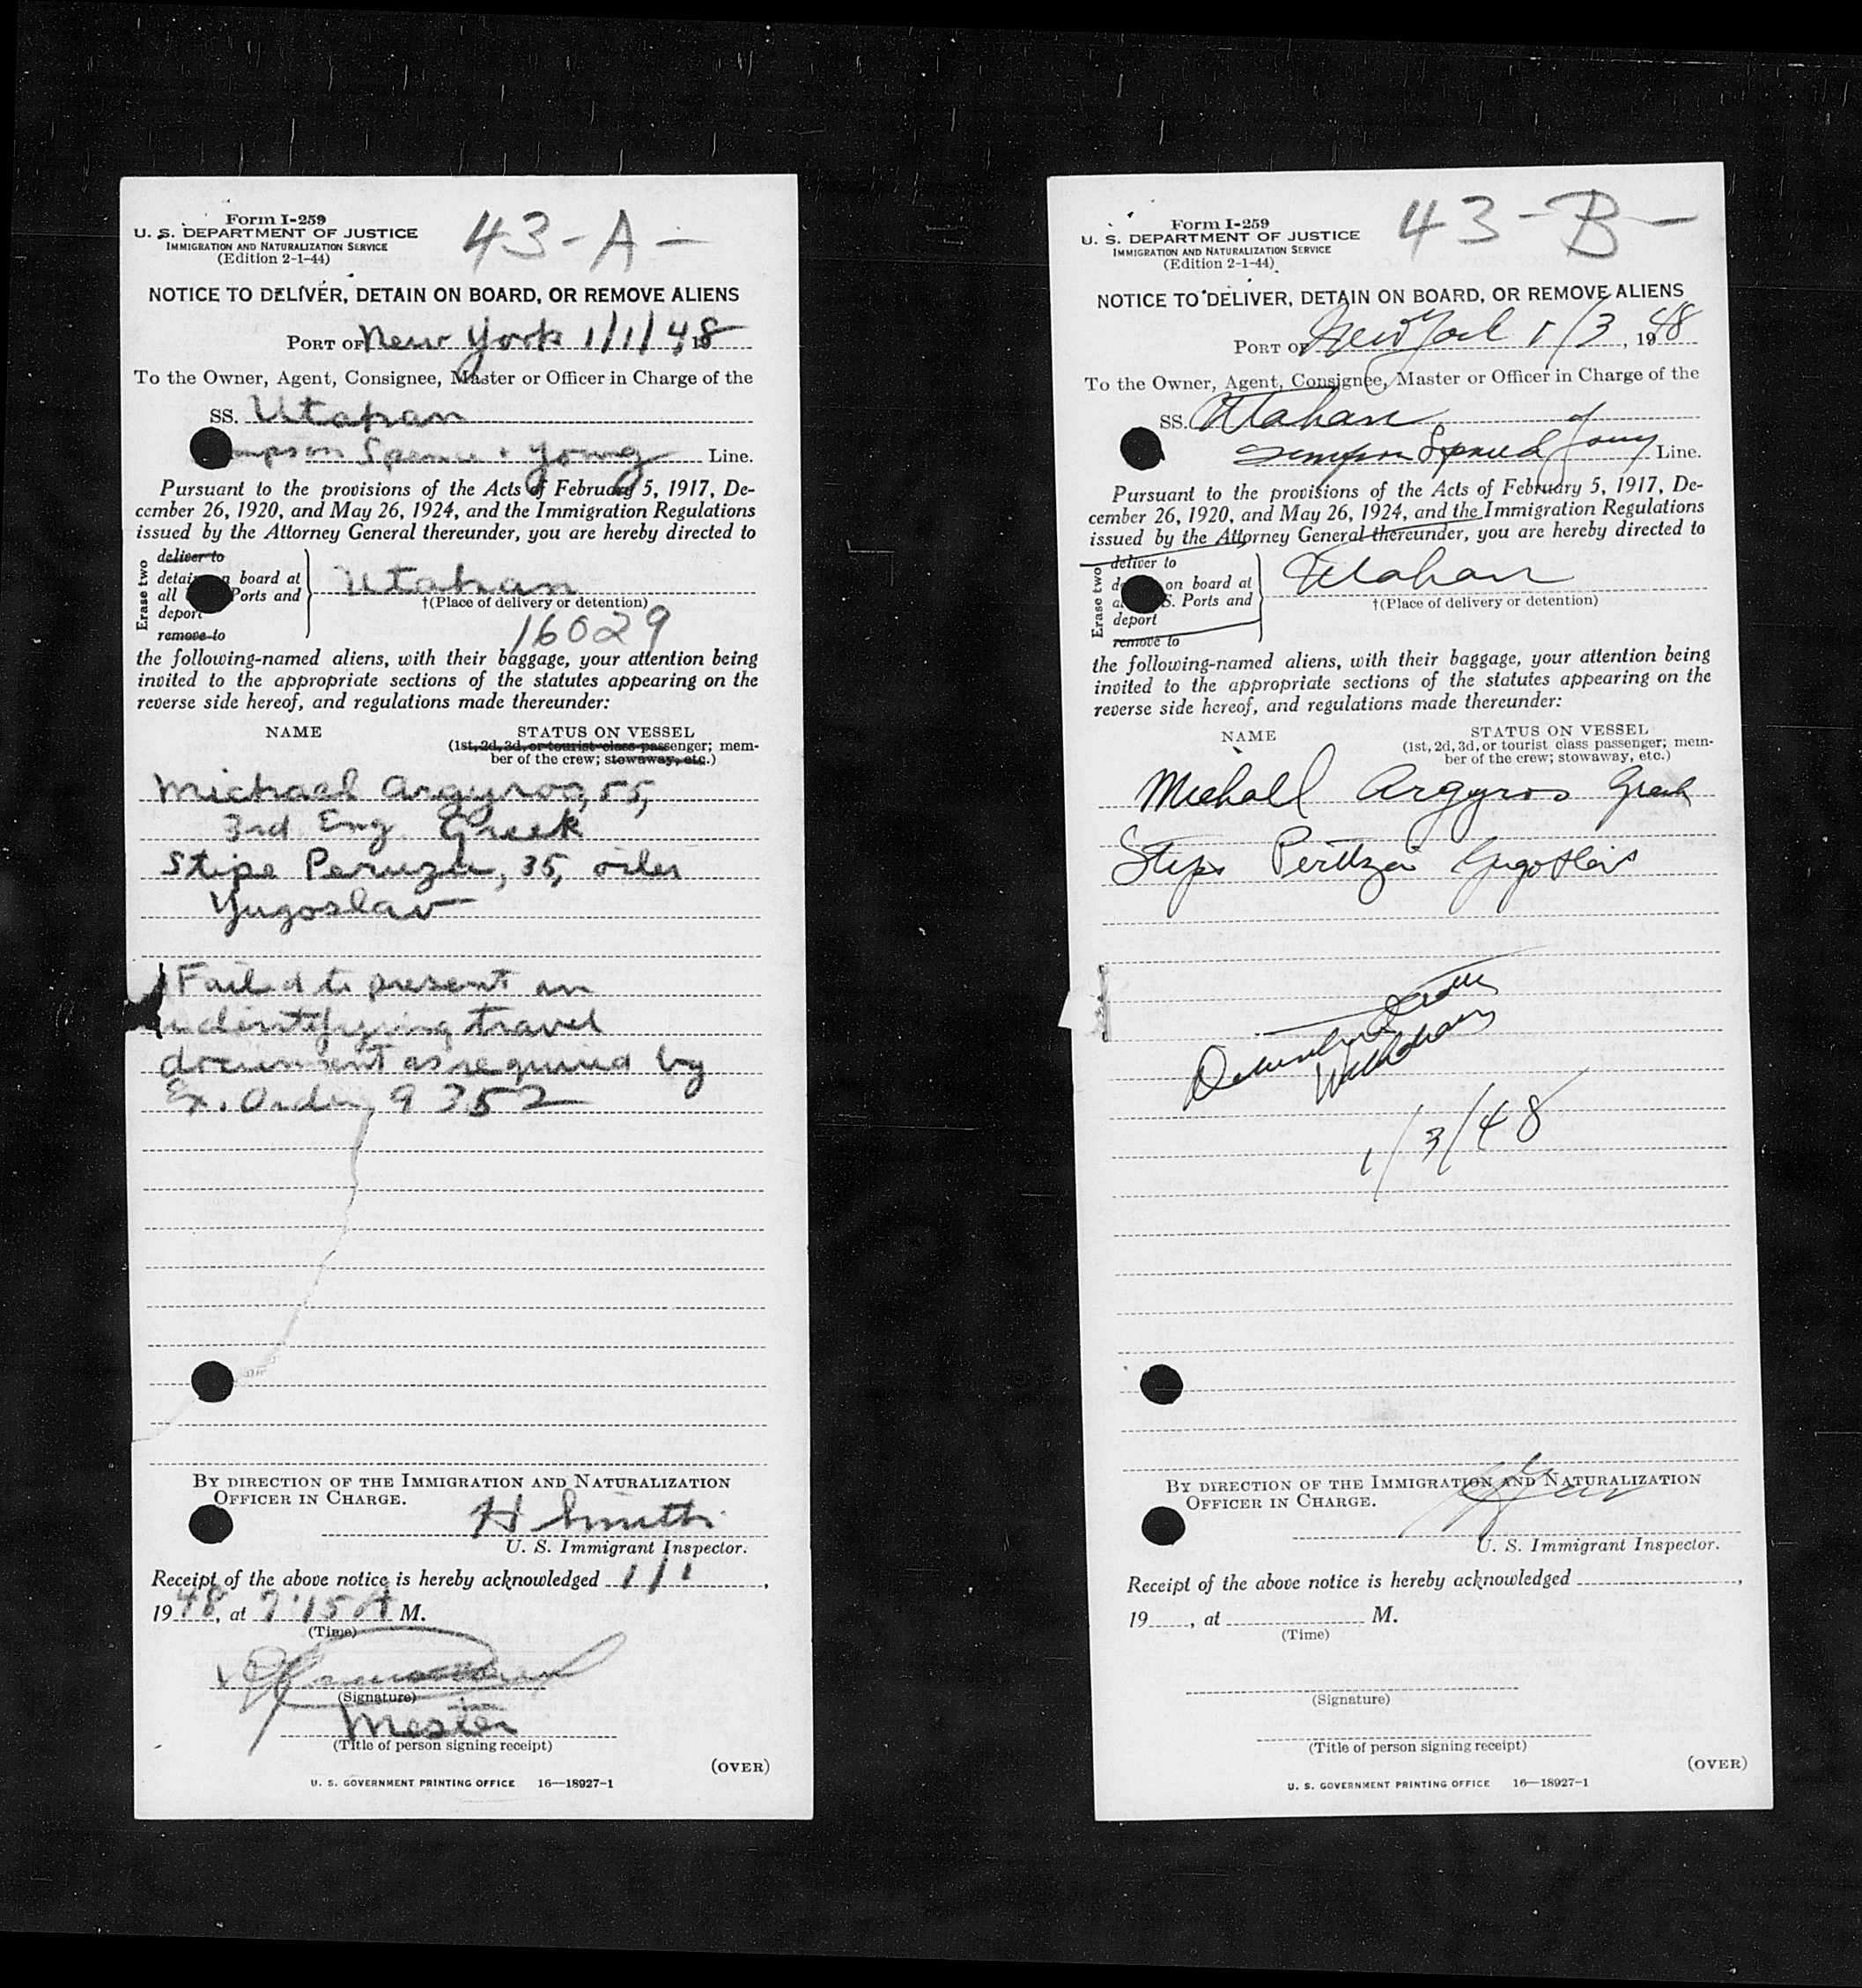 Form I-259
U. S. DEPARTMENT OF JUSTICE
IMMIGRATION AND NATURALIZATION SERVICE
(Edition 2-1-44)
43-A-
NOTICE TO DELIVER, DETAIN ON BOARD, OR REMOVE ALIENS
PORT OF New York 1/1/48, 19
To the Owner, Agent, Consignee, Master or Officer in Charge of the
SS. Utahan
mpson Spence & Young Line.
Pursuant to the provisions of the Acts of February 5, 1917, De-
cember 26, 1920, and May 26, 1924, and the Immigration Regulations
issued by the Attorney General thereunder, you are hereby directed to
Erase two
deliver to
board at
all Ports and
deport
remove to
Utahan
†(Place of delivery or detention)
16029
the following-named aliens, with their baggage, your attention being
invited to the appropriate sections of the statutes appearing on the
reverse side hereof, and regulations made thereunder:
NAME STATUS ON VESSEL
(1st, 2d, 3d, or tourist class passenger; mem-
ber of the crew; stowaway, etc.)
Michael Argyros, 55,
3rd Eng Greek
Stipe Peruza, 35, oiler
Yugoslav
Failed to present an
identifying travel
document as required by
Ex. Order, 9352
BY DIRECTION OF THE IMMIGRATION AND NATURALIZATION
OFFICER IN CHARGE.
H Smith
U. S. Immigrant Inspector.
Receipt of the above notice is hereby acknowledged 1/1,
1948, at 7:15 A M.
(Time)
(Signature)
Master
(Title of person signing receipt)
(OVER)
U. S. GOVERNMENT PRINTING OFFICE 16—18927-1
Form I-259
U. S. DEPARTMENT OF JUSTICE
IMMIGRATION AND NATURALIZATION SERVICE
(Edition 2-1-44)
43-B-
NOTICE TO DELIVER, DETAIN ON BOARD, OR REMOVE ALIENS
PORT OF New York 1/3, 1948
To the Owner, Agent, Consignee, Master or Officer in Charge of the
SS. Utahan
Line.
Pursuant to the provisions of the Acts of February 5, 1917, De-
cember 26, 1920, and May 26, 1924, and the Immigration Regulations
issued by the Attorney General thereunder, you are hereby directed to
Erase two
deliver to
on board at
S. Ports and
deport
remove to
Utahan
†(Place of delivery or detention)
the following-named aliens, with their baggage, your attention being
invited to the appropriate sections of the statutes appearing on the
reverse side hereof, and regulations made thereunder:
NAME STATUS ON VESSEL
(1st, 2d, 3d, or tourist class passenger; mem-
ber of the crew; stowaway, etc.)
Argyros Greek
1/3/48
BY DIRECTION OF THE IMMIGRATION AND NATURALIZATION
OFFICER IN CHARGE.
U. S. Immigrant Inspector.
Receipt of the above notice is hereby acknowledged ,
19 , at M.
(Time)
(Signature)
(Title of person signing receipt)
(OVER)
U. S. GOVERNMENT PRINTING OFFICE 16—18927-1